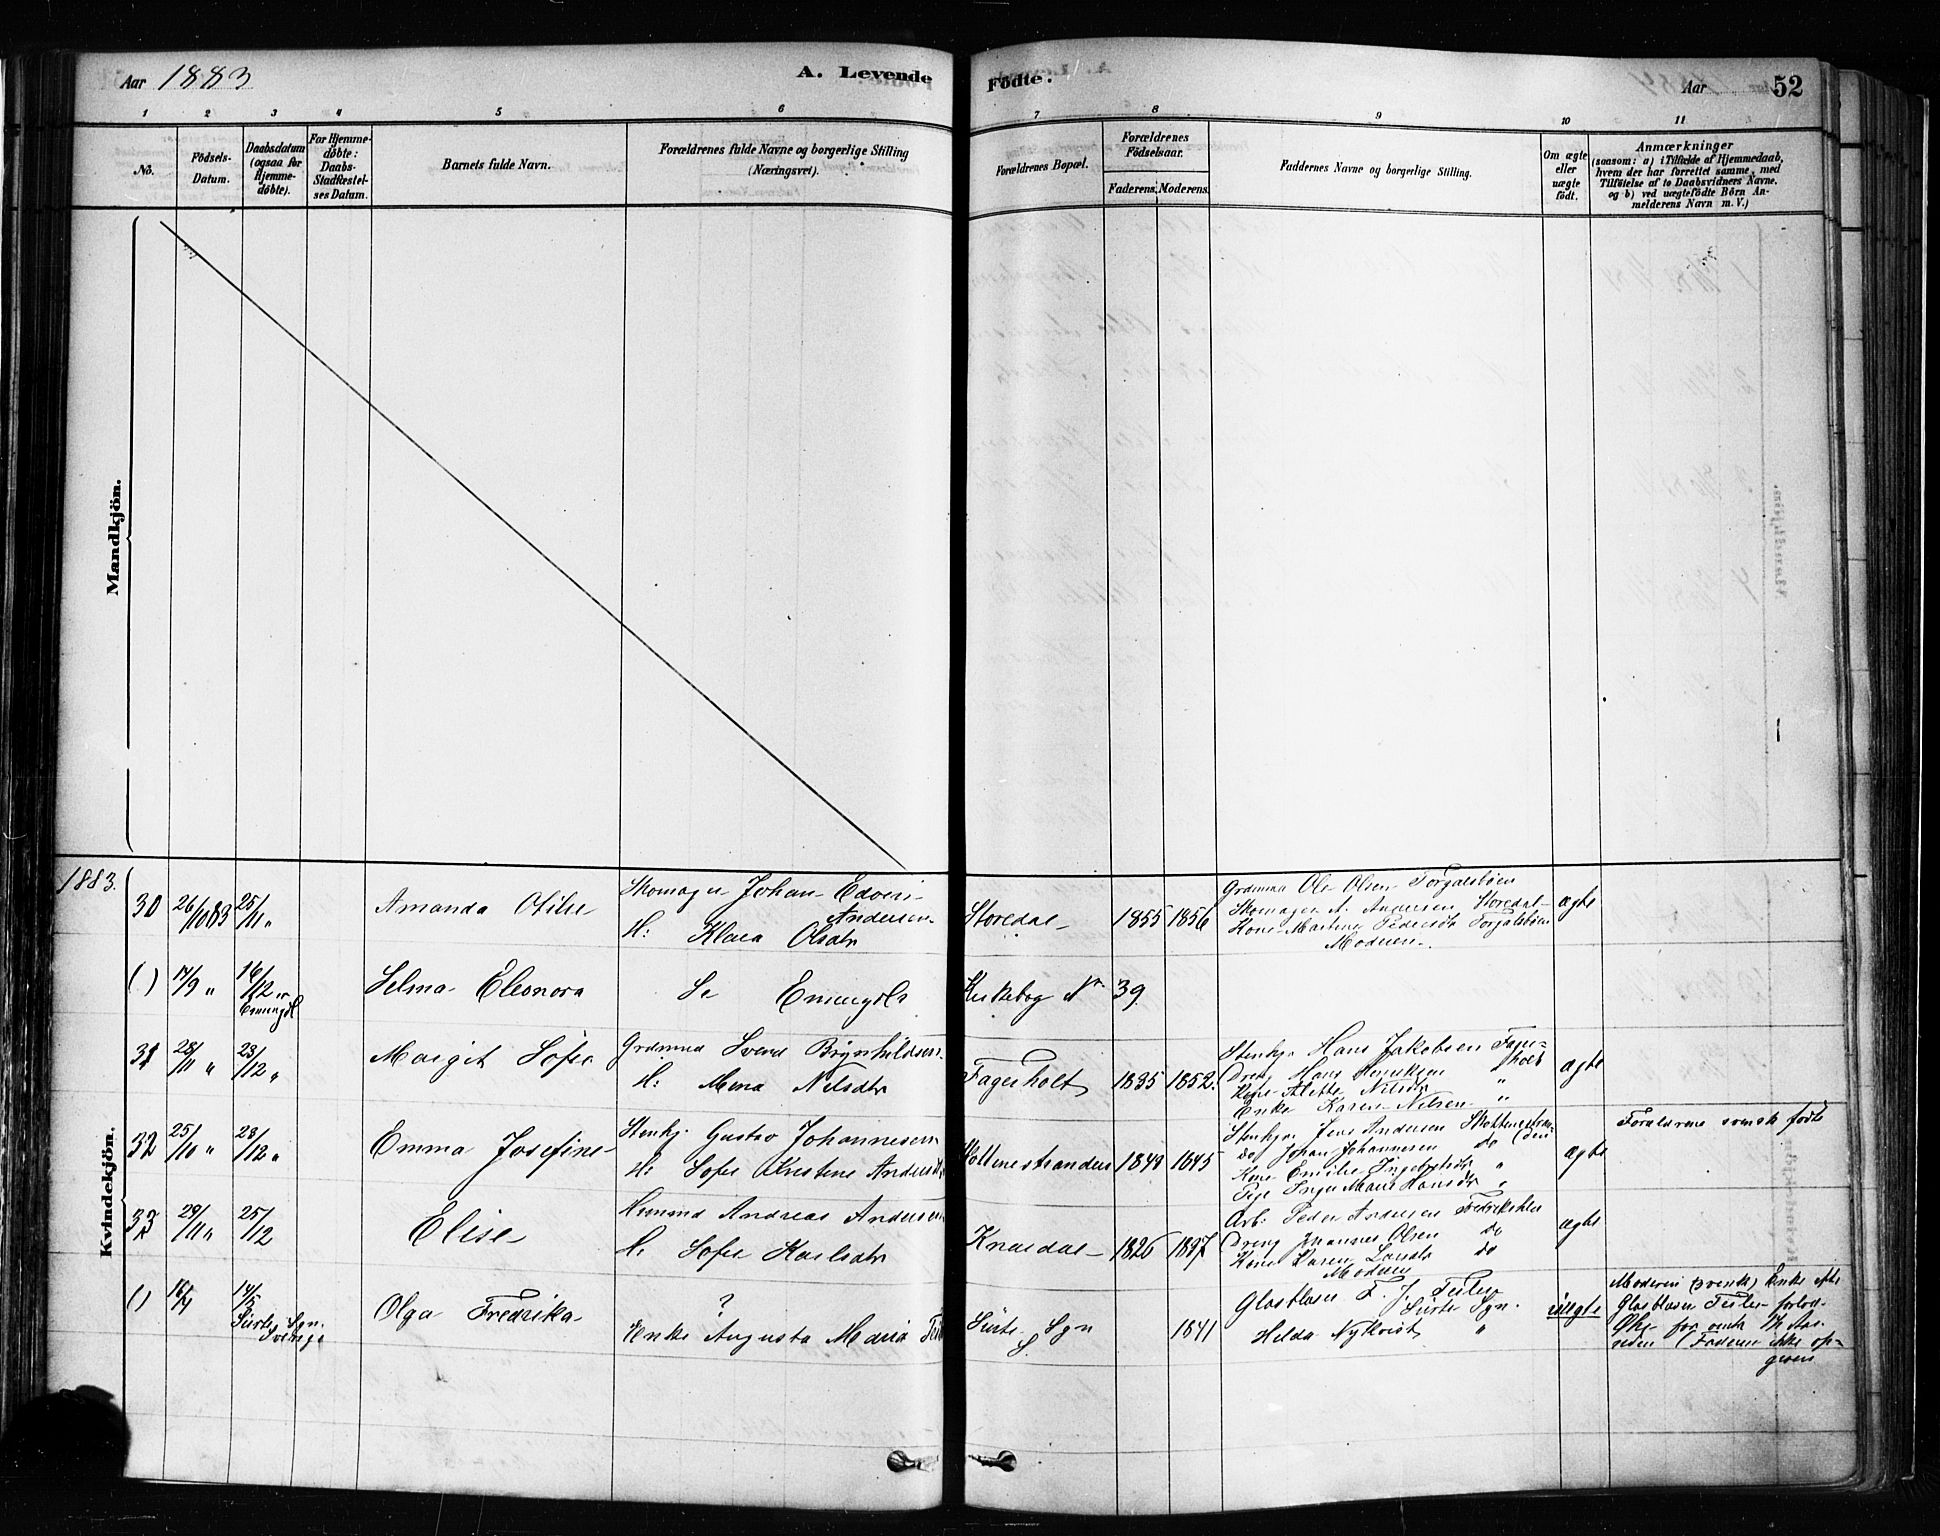 Aar 1883
A. Levende
Födte.
Aar
52
1 2 3 4 5 6 7 8 9 10 11
No.
Födsels-
Datum.
Daabsdatum
(ogsaa for
Hjemme-
döbte).
For Hjemme-
döbte:
Daabs-
Stadfæstel-
ses Datum.
Barnets fulde Navn.
Forældrenes fulde Navne og borgerlige Stilling
(Næringsvei).
Forældrenes Bopæl.
Forældrenes
Födselsaar.
Faderens. Moderens.
Faddernes Navne og borgerlige Stilling.
Om ægte
eller
uægte
födt.
Anmærkninger
(saasom: a) i Tilfælde af Hjemmedaab,
hvem der har forrettet samme, med
Tilföielse af to Daabsvidners Navne,
og b) ved uægtefödte Börn An-
melderens Navn m. V.)
Mandkjön.
Kvindekjön.
1883.
30 26/10 83 25/11 "
Amanda Otilie
Skomager Johan Edvard
Andersen
H: Klara Olsdtr
Storedal
1855 1856
Grdmnd Ole Olsen Torgalsböen
Skomager A. Andersen Storedal
Kone Martine Pedersdtr Torgalsböen
Moderen
ægte
( ) 14/9 " 16/12
Selma Eleonora
Se
Kirkebog No 39.
31 28/11 " 23/12 "
Margit Sofie
Grdmnd Svend Brynhildsen
H: Mina Nilsdtr
Fagerholt
1835 1852.
Stenhgr Hans Jakobsen Fager-
holt
Dreng Hans Henriksen "
Kone Alette Nilsdtr "
Enke Karen Nilsen "
ægte
32 25/10 " 23/12 "
Emma Josefine
Stenhgr. Gustav Johannesen
H: Sofie Kristine Andersdtr
1849 1845
Stenhgr. Jens Andersen
do Johan Johannesen do
Kone Emilie Ingebretsdtr "
Pige Inger Marie Hansdtr "
ægte
Forældrene svensk födte
33 29/11 " 25/12
Elise
Husmnd Andreas Andersen
H: Sofie Karlsdtr
Knardal
1826 1837
Arb: Peder Andersen Fredrikshald
Dreng Johannes Olsen do
Kone Karen Larsdtr do
Moderen
ægte
( ) 16/4 14/5
Surte Sgn.
Sverige
Olga Fredrika
?
Enke Augusta Maria
Surte Sgn
S
1841
Glasblaser F. J. Feiler
Surte Sgn.
Hilda Nykvist "
uægte
Moderen (svensk) Enke efter
Glasblaser Feiler
for omtr
siden (Faderen ikke op-
given